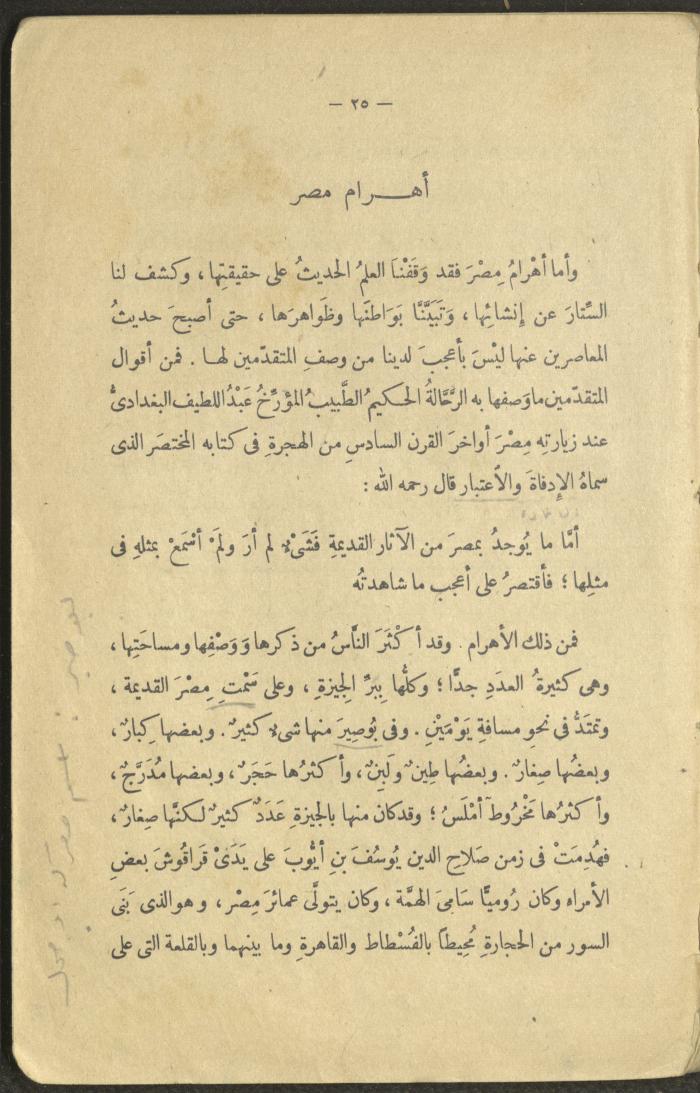 — ٢٥ —
أهـــرام مصر
وأما أهْرامُ مِصْرَ فقد وَقَفْنَا العلمُ الحديثُ على حقيقتِها ، وكشف لنا
السِّتارَ عن إنشائِها ، وَتَبَيَّنَّا بَوَاطنَها وظَواهرَها ، حتى أصبحَ حديثُ
المعاصرين عنها ليْسَ بأعجبَ لدينا من وصفِ المتقدّمين لهـا . فمن أقوال
المتقدّمين ماوَصفها به الرَّحَّالةُ الحكيمُ الطَّبيبُ المؤرِّخُ عَبْدُ اللطيف البغدادىُّ
عند زيارتِه مِصْرَ أواخرَ القرن السادسِ من الهجرةِ فى كتابه المختصَر الذى
سماهُ الإِدفاةَ والاٌعتبار قال رحمه الله :
أمَّا ما يُوجدُ بمصرَ من الآثار القديمةِ فَشَىْءٌ لم أرَ ولَمْ أسْمَعْ بمثلهِ فى
مثلِها ؛ فأقتصرُ على أعجب ما شاهدتُه
فمن ذلك الأهرام . وقد أكْثَرَ النَّاسُ من ذكرها وَوَصْفِها ومساحَتِها ،
وهى كثيرةُ العدَدِ جدًّا ؛ وكلُّها بِبرِّ الجيزةِ ، وعلى سَمْتِ مِصْرَ القديمة ،
وتمتَدُّ فى نحوِ مسافةِ يَوْمَيْنِ . وفى بُوصِيرَ منها شىءٌ كثيرٌ . وبعضها كِبارٌ ،
وبعضُها صِغارٌ . وبعضُها طِينٌ ولَبِنٌ ، وأكثرُها حَجَرٌ ، وبعضها مُدَرَّجٌ ،
وأكثرُها مَخْرُوطٌ أَمْلَسُ ؛ وقدكان منها بالجيزةِ عَدَدٌ كثيرٌ لـكنَّها صِغارٌ ،
فهُدِمَتْ فى زمن صَلاحِ الدين يُوسُفَ بنِ أيُّوبَ على يَدَىْ قَرَاقُوشَ بعضِ
الأمراء وكان رُوميًّا سَامِىَ الهمَّة ، وكان يتولَّى عمائرَ مِصْر ، وهوالذى بَنَى
السور من الحجارةِ مُحِيطاً بالفُسْطاط والقاهرةِ وما بينهما وبالقلعة التى على